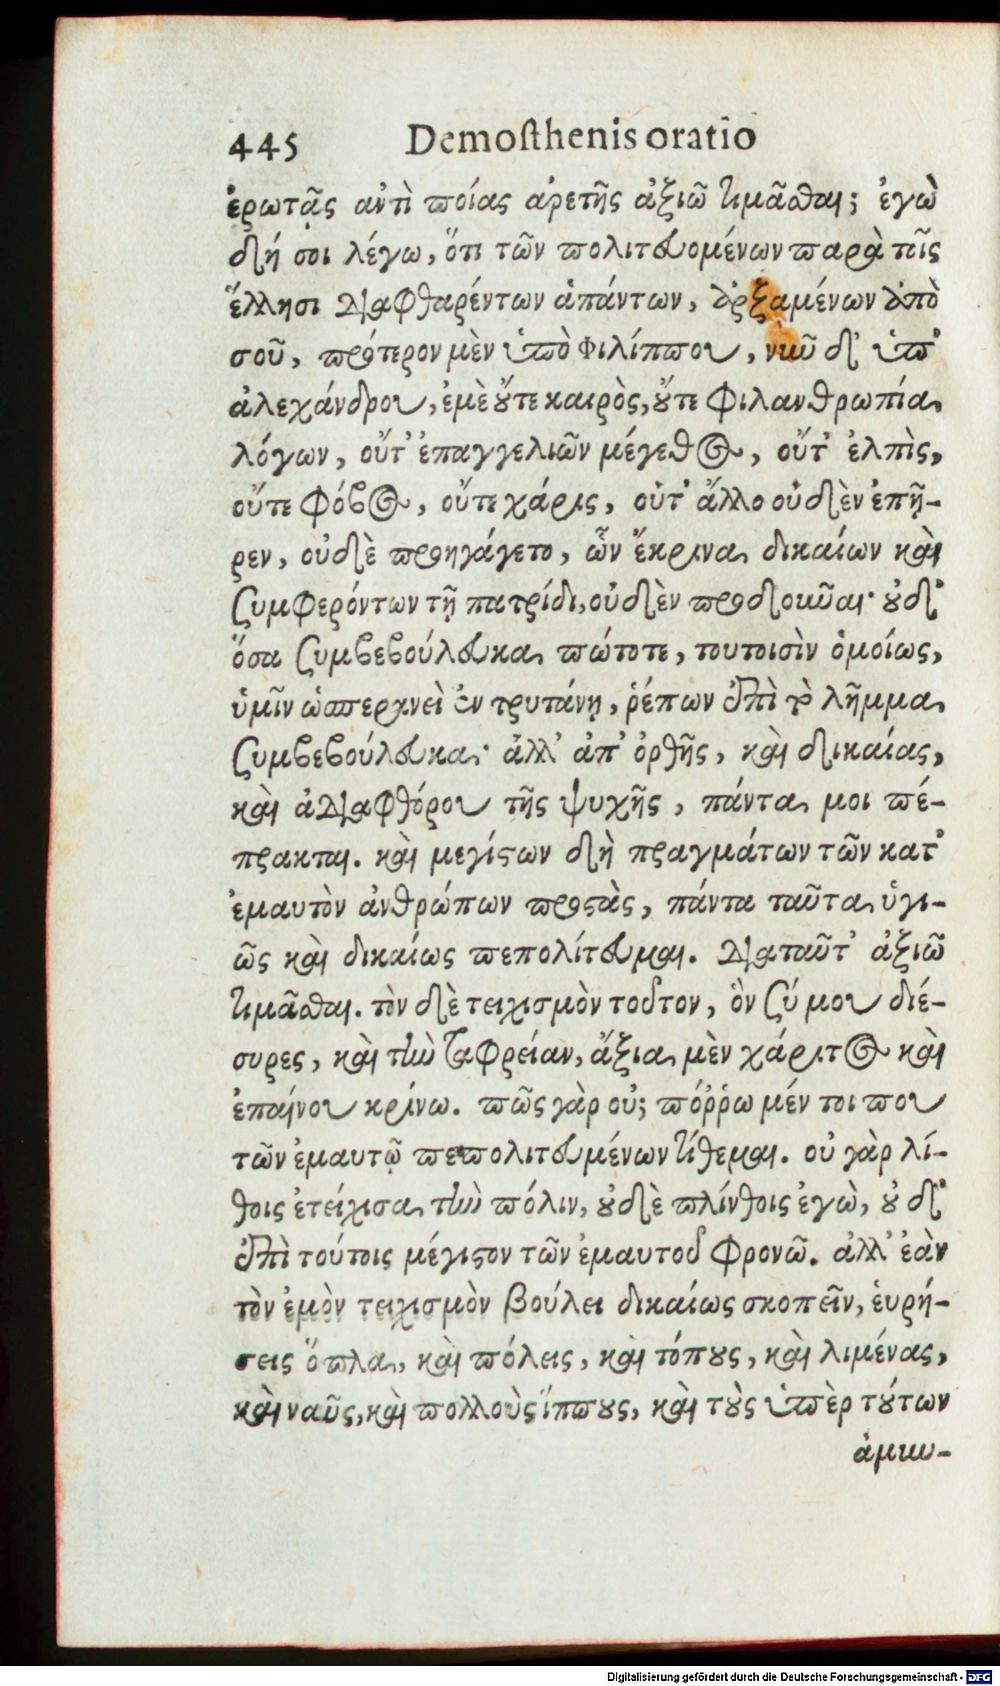 445 Demosthenis oratio
ἐρωτᾷς ἀντὶ ποίας ἀρετῆς ἀξιῶ τιμᾶσθαι; ἐγὼ
δή σοι λέγω, ὅτι τῶν πολιτευομένων παρὰ τοῖς
ἕλλησι διαφθαρέντων ἁπάντων, ἀρξαμένων ἀπὸ
σοῦ, πρότερον μὲν ὑπὸ Φιλίππου, νυνὶ δ' ὑπ'
ἀλεχάνδρου, ἐμὲ οὔτε καιρὸς, οὔτε φιλανθρωπία
λόγων, οὔτ' ἐπαγγελιῶν μέγεθος, οὔτ' ἐλπὶς,
οὔτε φόβος, οὔτε χάρις, οὔτ' ἄλλο οὐδὲν ἐπῇ-
ρεν, οὐδὲ προηγάγετο, ὧν ἔκρινα δικαίων καὶ
συμφερόντων τῇ πατρίδι, οὐδὲν προδοῦναι· οὐδ'
ὅσα συμβεβούλευκα πώποτε, τουτοισὶν ὁμοίως,
ὑμῖν ὡσπερανεὶ ἐν τρυτάνῃ, ῥέπων ἐπὶ τὸ λῆμμα
συμβεβούλευκα· ἀλλ' ἀπ' ὀρθῆς, καὶ δικαίας,
καὶ ἀδιαφθόρου τῆς ψυχῆς, πάντα μοι πέ-
πρακται. καὶ μεγίστων δὴ πραγμάτων τῶν κατ'
ἐμαυτὸν ἀνθρώπων προστὰς, πάντα ταῦτα ὑγι-
ῶς καὶ δικαίως πεπολίτευμαι. διαταῦτ' ἀξιῶ
τιμᾶσθαι. τὸν δὲ τειχισμὸν τοῦτον, ὃν σύ μου διέ-
συρες, καὶ τὴν ταφρείαν, ἄξια μὲν χάριτος καὶ
ἐπαίνου κρίνω. πῶς γὰρ οὐ; πόῤῥω μέν τοι που
τῶν ἐμαυτῷ πεπολιτευμένων τίθεμαι. οὐ γὰρ λί-
θοις ἐτείχισα τὴν πόλιν, οὐδὲ πλίνθοις ἐγὼ, οὐδ'
ἐπὶ τούτοις μέγιστον τῶν ἐμαυτοῦ φρονῶ. ἀλλ' ἐὰν
τὸν ἐμὸν τειχισμὸν βούλει δικαίως σκοπεῖν, εὑρή-
σεις ὅπλα, καὶ πόλεις, καὶ τόπους, καὶ λιμένας,
καὶ ναῦς, καὶ πολλοὺς ἵππους, καὶ τοὺς ὑπὲρ τούτων
ἀμυν-
Digitalisierung gefördert durch die Deutsche Forschungsgemeinschaft - DFG